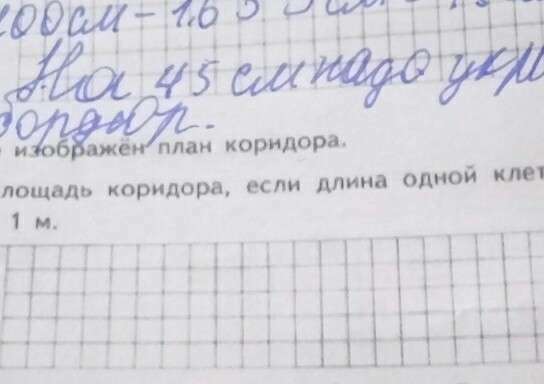 100см - 1.6
На 45 см надо укр
бордюр.
изображён план коридора.
лощадь коридора, если длина одной клет
1 м.